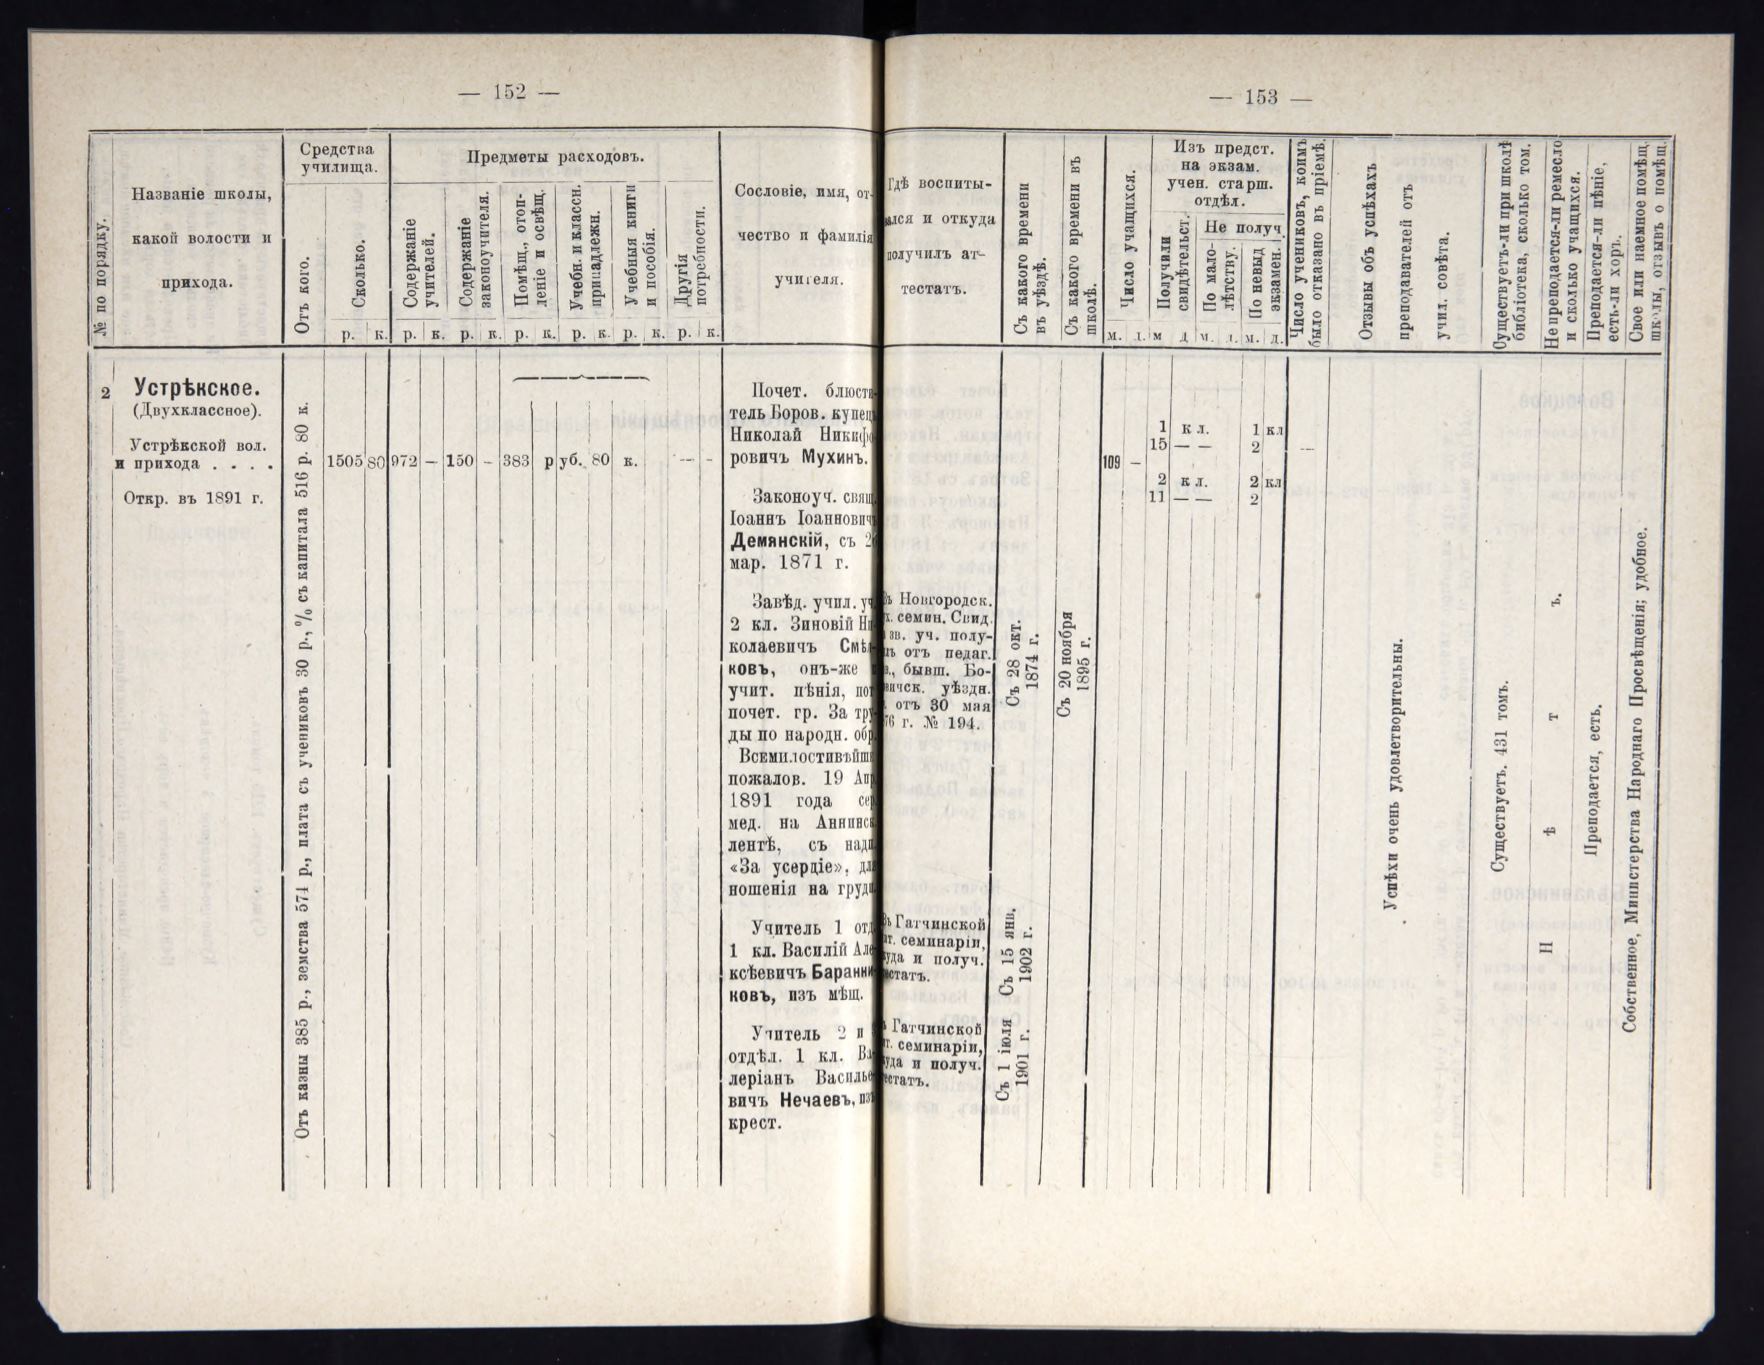 — 152 —
№ по порядку.
Названіе школы,
какой волости и
прихода.
Средства
училища.
Отъ кого.
Сколько.
р. к.
Предметы расходовъ.
Содержаніе
учителей.
Содержаніе
законоучителя.
Помѣщ., отоп-
леніе и освѣщ.
Учебн. и классн.
принадлежн.
Учебныя книги
и пособія.
Другія
потребности.
р. к. р. к. р. к. р. к. р. к. р. к.
Сословіе, имя, от-
чество и фамилія
учителя.
2
Устрѣкское.
(Двухклассное).
Устрѣкской вол.
и прихода . . . .
Откр. въ 1891 г.
Отъ казны 385 р., земства 571 р., плата съ учениковъ 30 р., % съ капитала 516 р. 80 к.
1505 80 972 — 150 — 383 руб. 80 к. — —
Почет. блюсти-
тель Боров. купецъ
Николай Никифо-
ровичъ Мухинъ.
Законоуч. свящ.
Іоаннъ Іоанновичъ
Демянскій, съ
мар. 1871 г.
Завѣд. учил. уч.
2 кл. Зиновій Ни-
колаевичъ Смѣл-
ковъ, онъ-же и
учит. пѣнія, пот.
почет. гр. За тру-
ды по народн. обр.
Всемилостивѣйше
пожалов. 19 Апр.
1891 года сер.
мед. на Аннинск.
лентѣ, съ надп.
«За усердіе», для
ношенія на груди.
Учитель 1 отд.
1 кл. Василій Але-
ксѣевичъ Баранни-
ковъ, изъ мѣщ.
Учитель 2 и
отдѣл. 1 кл. Ва-
леріанъ Василье-
вичъ Нечаевъ, изъ
крест.
— 153 —
Гдѣ воспиты-
вался и откуда
получилъ ат-
тестатъ.
Съ какого времени
въ уѣздѣ.
Съ какого времени въ
школѣ.
Число учащихся.
м. д.
Изъ предст.
на экзам.
учен. старш.
отдѣл.
Получили
свидѣтельст.
Не получ.
По мало-
лѣтству.
По невыд.
экзамен.
м д м. д. м. д.
Число учениковъ, коимъ
было отказано въ пріемѣ.
Отзывы объ успѣхахъ
преподавателей отъ
учил. совѣта.
Существуетъ-ли при школѣ
библіотека, сколько том.
Не преподается-ли ремесло
и сколько учащихся.
Преподается-ли пѣніе,
есть-ли хоръ.
Свое или наемное помѣщ.
школы, отзывъ о помѣщ.
Въ Новгородск.
семин. Свид.
зв. уч. полу-
отъ педаг.
бывш. Бо-
уѣздн.
отъ 30 мая
г. № 194.
Съ 28 окт.
1874 г.
Съ 20 ноября
1895 г.
109 —
1 кл. 1 кл
15 — — 2
2 кл. 2 кл
11 — — 2
—
Успѣхи очень удовлетворительны.
Существуетъ. 431 томъ.
Нѣтъ.
Преподается, есть.
Собственное, Министерства Народнаго Просвѣщенія; удобное.
Въ Гатчинской
семинаріи,
и получ.
Съ 15 янв.
1902 г.
Гатчинской
семинаріи,
и получ.
Съ 1 іюля
1901 г.